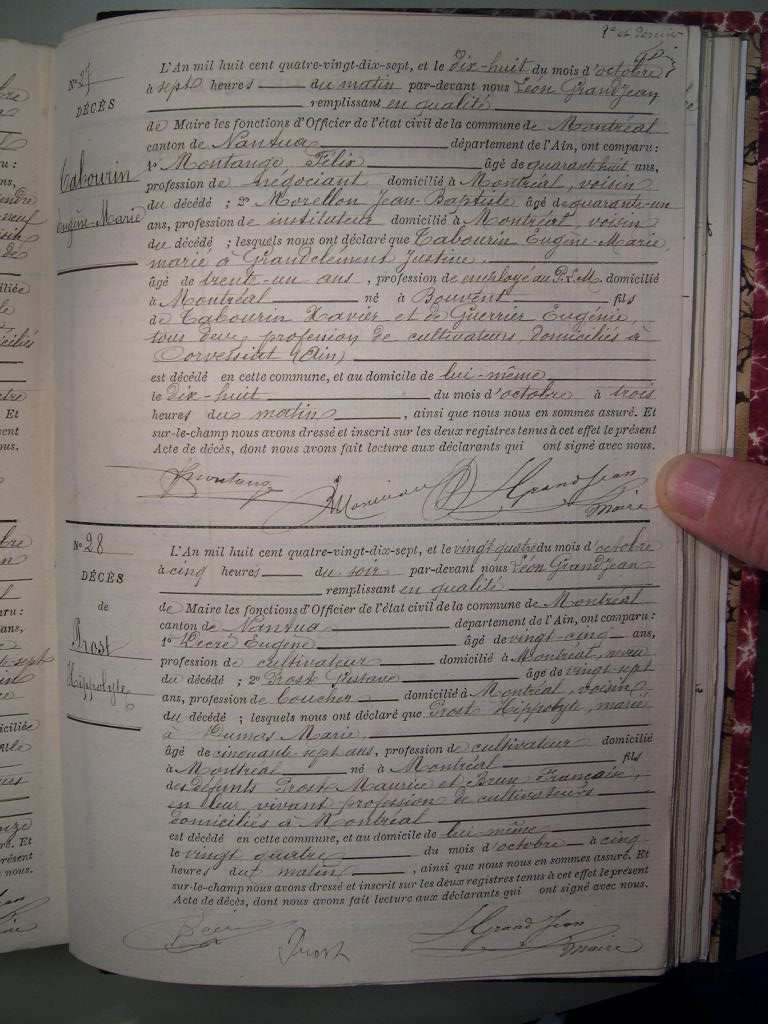 Nº 27
DÉCÈS
Tabourin
Eugène-Marie
L'An mil huit cent quatre-vingt-dix-sept, et le dix-huit du mois d'octobre
à sept heures du matin par-devant nous Léon Grandjean
remplissant en qualité
de Maire les fonctions d'Officier de l'état civil de la commune de Montréal
canton de Nantua département de l'Ain, ont comparu:
1º Montange Félix âgé de quarante huit ans,
profession de négociant domicilié à Montréal, voisin
du décédé ; 2º Morellon Jean-Baptiste âgé de quarante-un
ans, profession de instituteur domicilié à Montréal, voisin
du décédé ; lesquels nous ont déclaré que Tabourin Eugène-Marie,
marié à Grandclément Justine,
âgé de trente-un ans, profession de employé au P.L.M. domicilié
à Montréal né à Bouvent fils
de Tabourin Xavier et de Guerrier Eugénie,
tous deux, profession de cultivateurs, domiciliés à
Corveissiat (Ain)
est décédé en cette commune, et au domicile de lui-même,
le dix-huit du mois d'octobre à trois
heures du matin, ainsi que nous nous en sommes assuré. Et
sur-le-champ nous avons dressé et inscrit sur les deux registres tenus à cet effet le présent
Acte de décès, dont nous avons fait lecture aux déclarants qui ont signé avec nous.
Montange LGrandJean
maire
Nº 28
DÉCÈS
de
Prost
Hippolyte
L'An mil huit cent quatre-vingt-dix-sept, et le vingt quatre du mois d'octobre
à cinq heures du soir par-devant nous Léon Grandjean
remplissant en qualité
de Maire les fonctions d'Officier de l'état civil de la commune de Montréal
canton de Nantua département de l'Ain, ont comparu:
1º Eugène âgé de vingt-cinq ans,
profession de cultivateur domicilié à Montréal, neveu
du décédé ; 2º Prost Gustave âgé de vingt sept
ans, profession de boucher domicilié à Montréal, voisin
du décédé ; lesquels nous ont déclaré que Prost Hippolyte, marié
à Dumas Marie,
âgé de cinquante-sept ans, profession de cultivateur domicilié
à Montréal né à Montréal fils
des défunts Prost Maurice et Brun Françoise,
en leur vivant profession de cultivateurs
domiciliés à Montréal
est décédé en cette commune, et au domicile de lui même,
le vingt quatre du mois d'octobre à cinq
heures du matin, ainsi que nous nous en sommes assuré. Et
sur-le-champ nous avons dressé et inscrit sur les deux registres tenus à cet effet le présent
Acte de décès, dont nous avons fait lecture aux déclarants qui ont signé avec nous.
Prost LGrandJean
maire